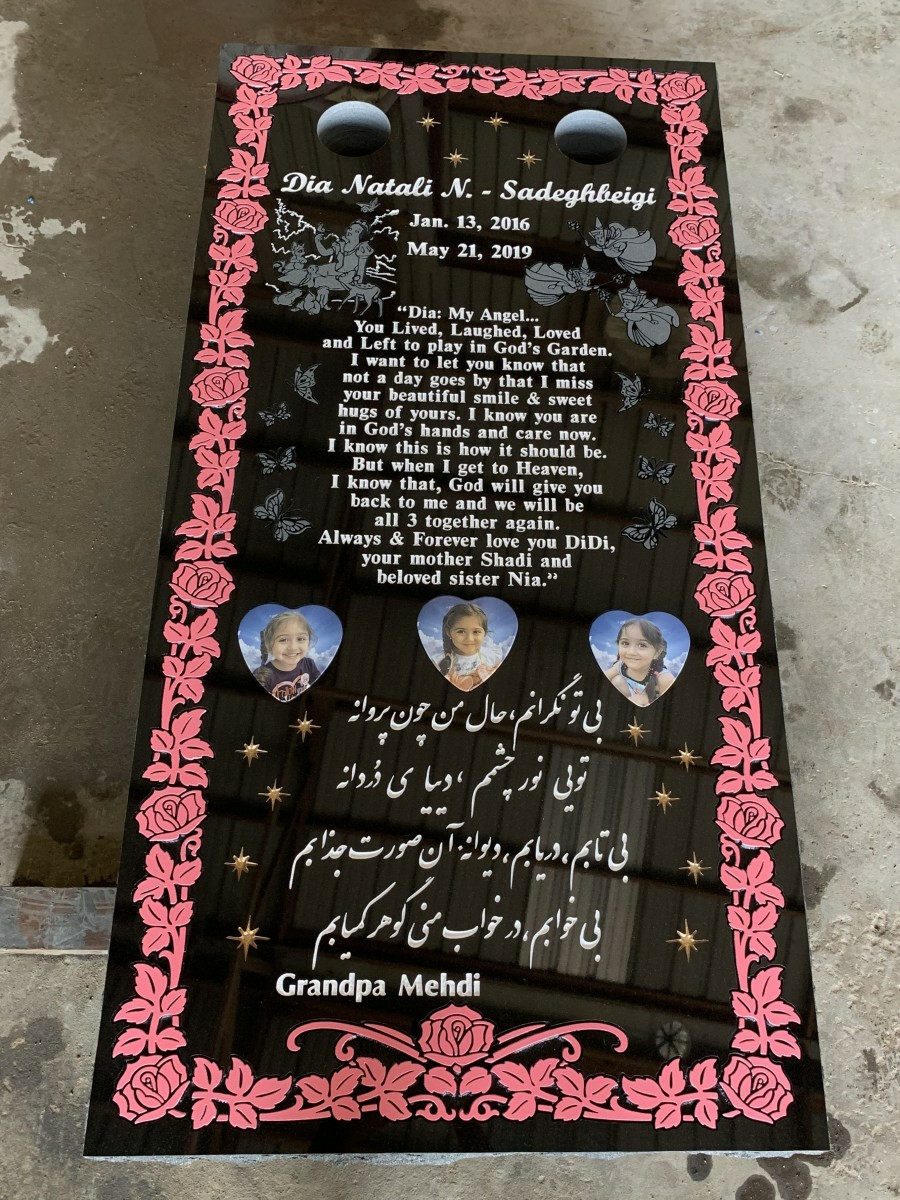 Dia Natali N. - Sadeghbeigi
Jan. 13, 2016
May 21, 2019
“Dia: My Angel...
You Lived, Laughed, Loved
and Left to play in God’s Garden.
I want to let you know that
not a day goes by that I miss
your beautiful smile & sweet
hugs of yours. I know you are
in God’s hands and care now.
I know this is how it should be.
But when I get to Heaven,
I know that, God will give you
back to me and we will be
all 3 together again.
Always & Forever love you DiDi,
your mother Shadi and
beloved sister Nia.”
بی تو نگرانم، حال من چون پروانه
تویی نور چشمم، دیبا ی دُردانه
بی تابم، دریابم، دیوانهٔ آن صورت جذابم
بی خوابم، در خواب منی گوهر کمیابم
Grandpa Mehdi